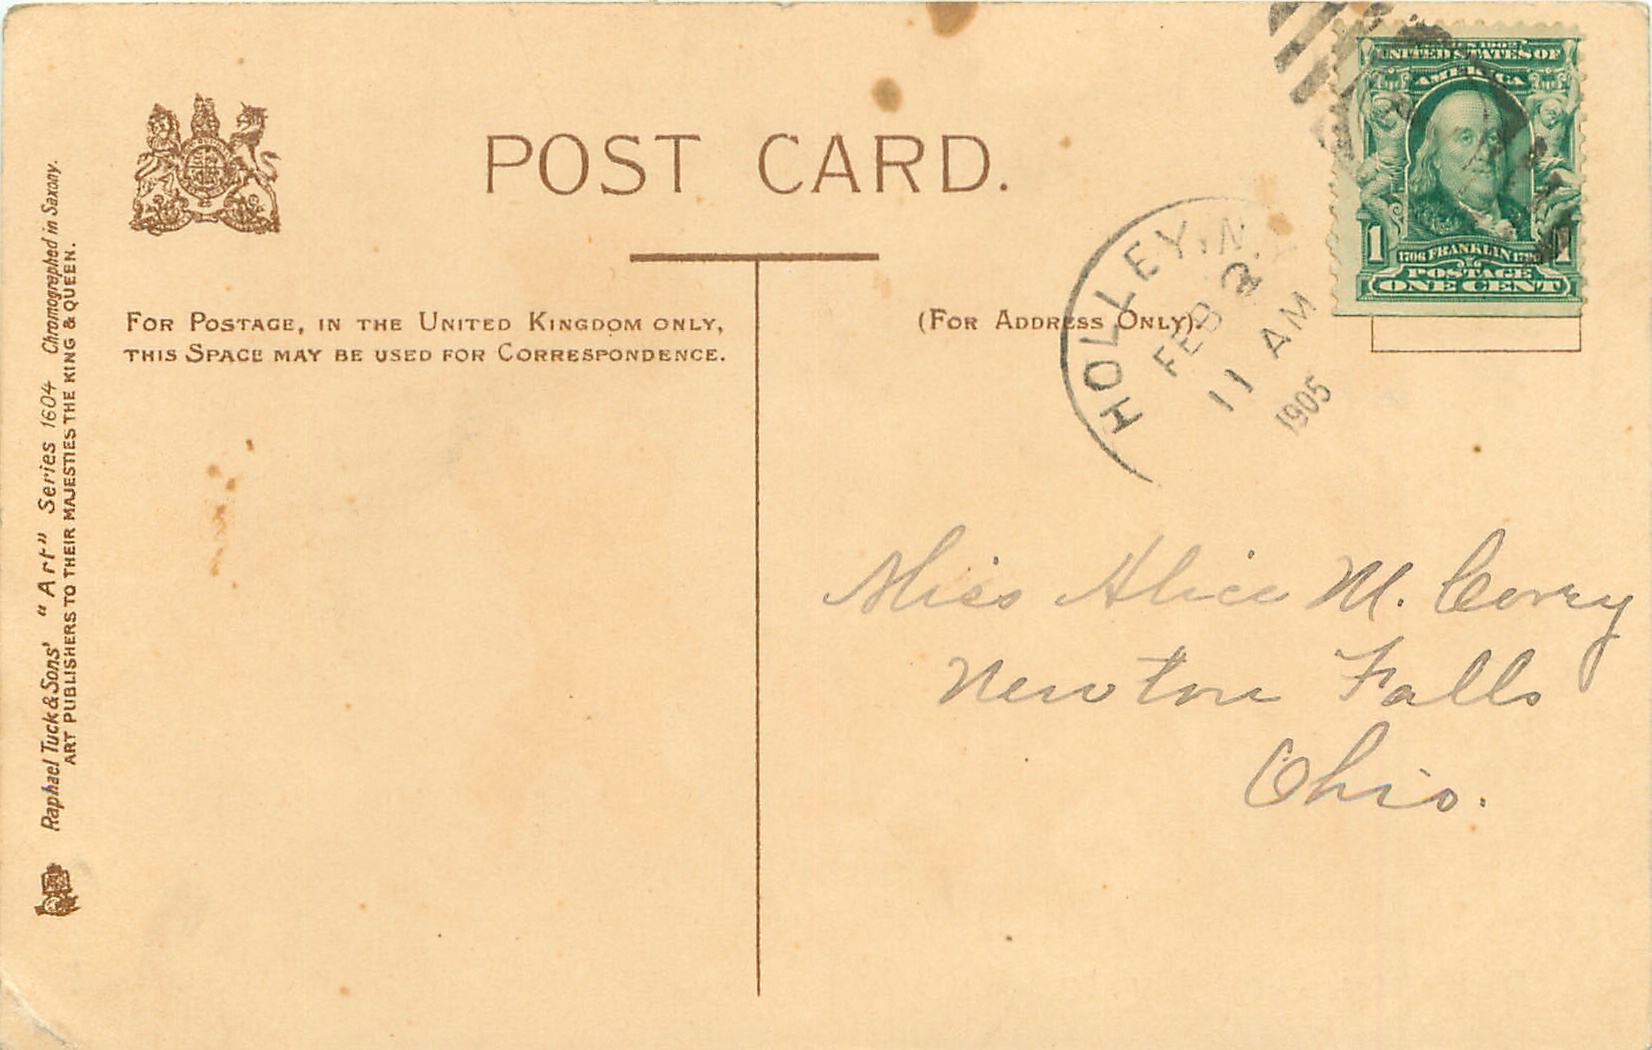 POST CARD.
FOR POSTAGE, IN THE UNITED KINGDOM ONLY,
THIS SPACE MAY BE USED FOR CORRESPONDENCE.
(FOR ADDRESS ONLY).
Raphael Tuck & Sons' "Art" Series 1604 Chromographed in Saxony.
ART PUBLISHERS TO THEIR MAJESTIES THE KING & QUEEN.
HOLLEY, N.
FEB 2
11 AM
1905
SERIES 1902
UNITED STATES OF
AMERICA
1 1706 FRANKLIN 1790 1
POSTAGE
ONE CENT
Miss Alice M. Corry
Newton Falls
Ohio.